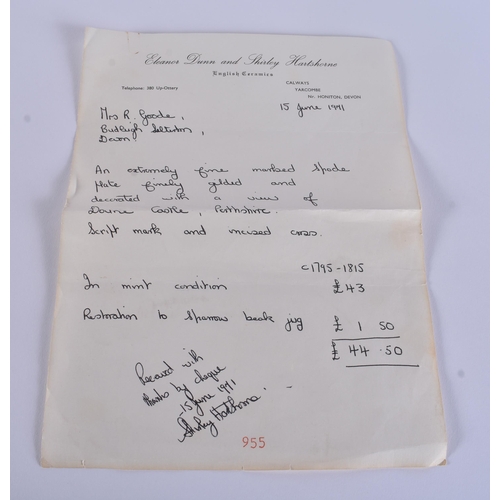 Eleanor Dunn and Shirley Hartshorne
English Ceramics
Telephone: 380 Up-Ottery
CALWAYS
YARCOMBE
Nr. HONITON, DEVON
15 June 1971
Mrs R. Goode,
Budleigh Salterton,
Devon.
An extremely fine marked Spode
plate finely gilded and
decorated with a view of
Doune Castle, Perthshire.
Script mark and incised cross.
c1795-1815
In mint condition £43
Restoration to Sparrow beak jug £ 1 50
£ 44.50
Received with
thanks by cheque
15 June 1971
Shirley Hartshorne
955